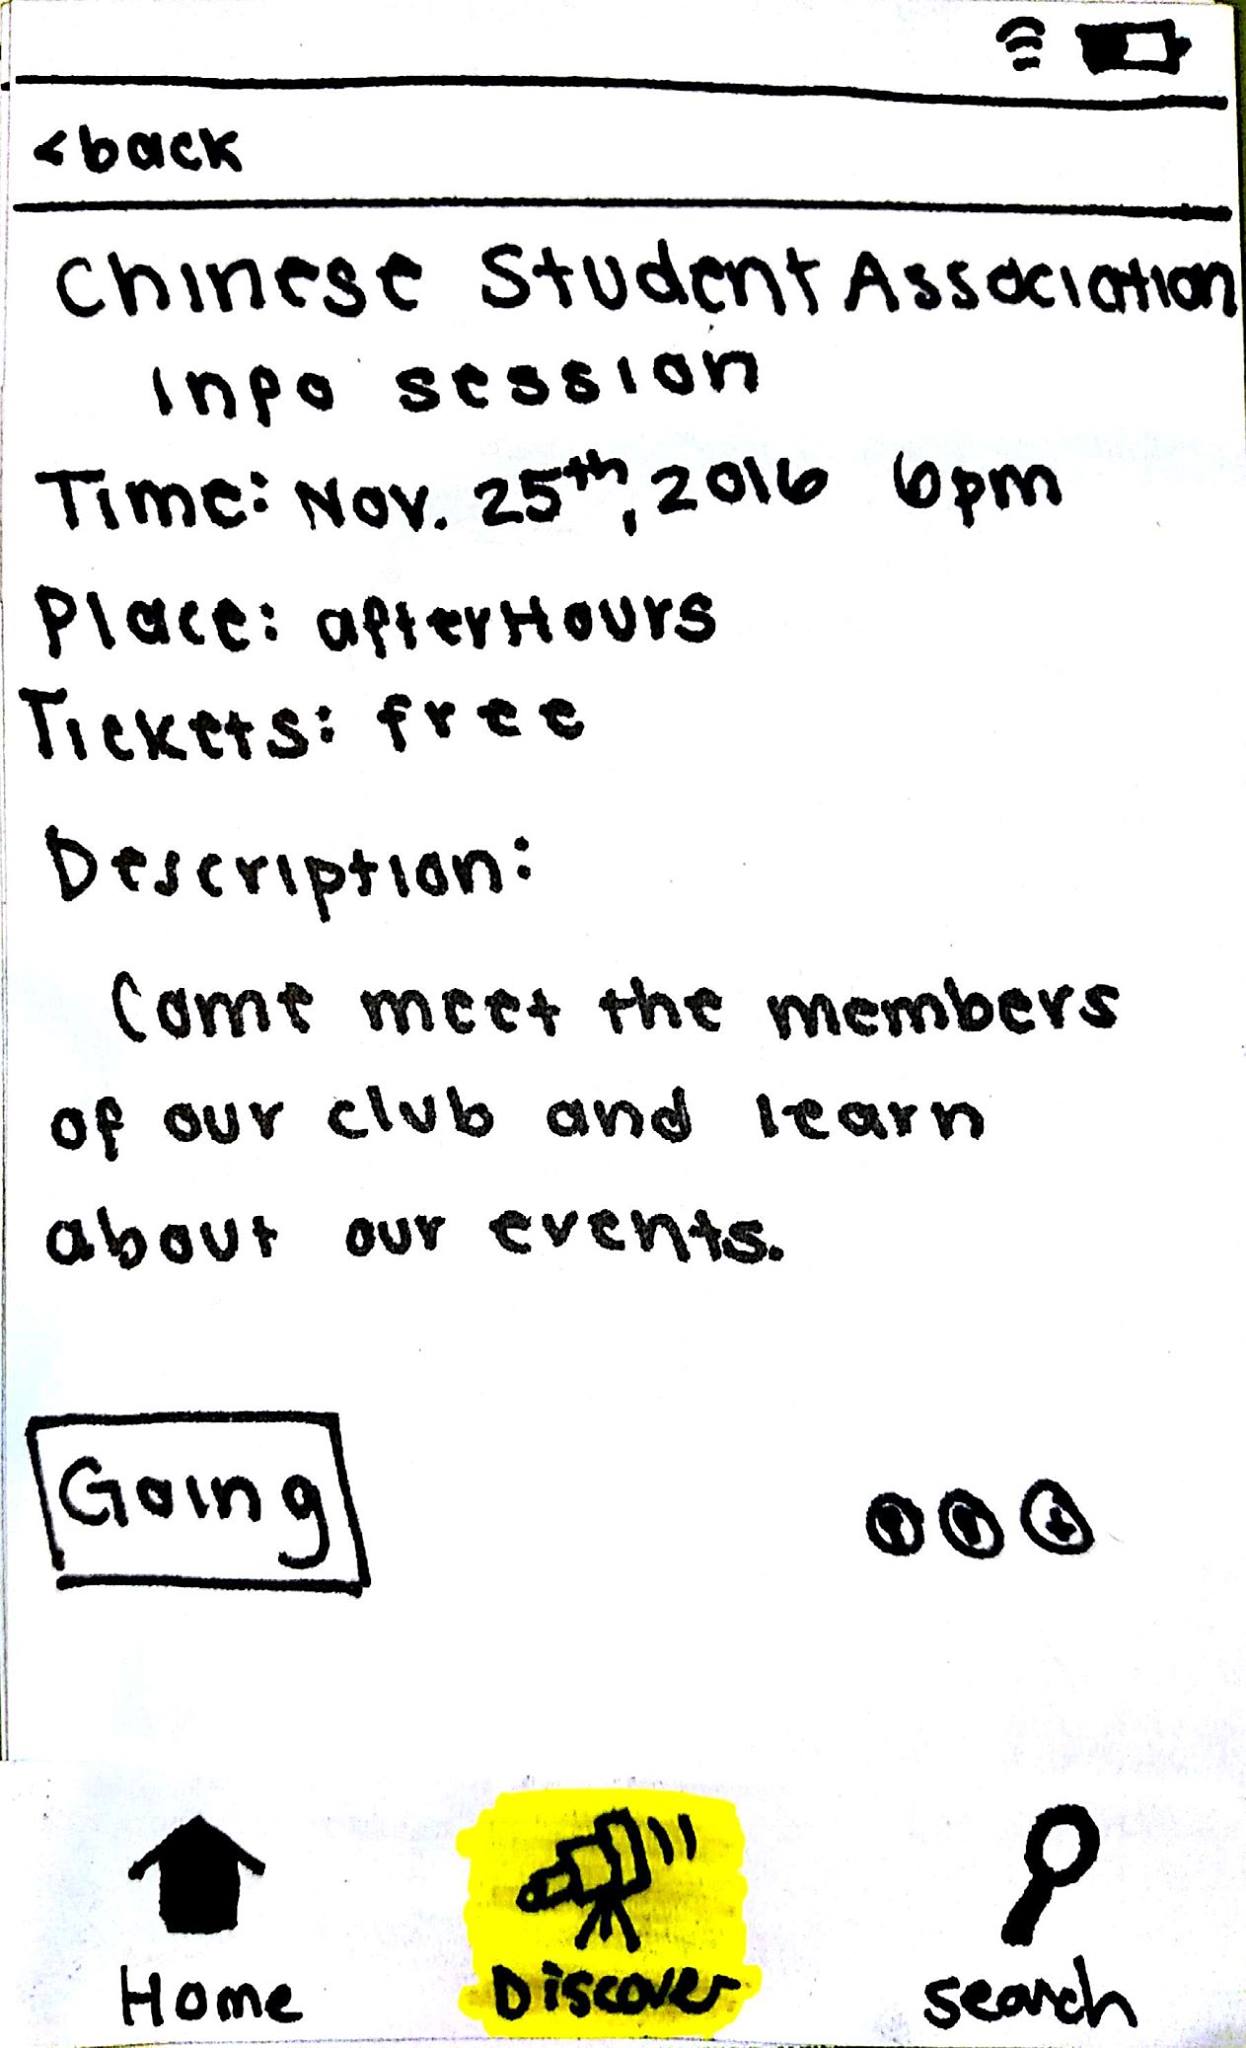 <back
Chinese Student Association
info session
Time: Nov. 25th, 2016 6pm
Place: afterHours
Tickets: free
Description:
Come meet the members
of our club and learn
about our events.
Going
Home
Discover
search